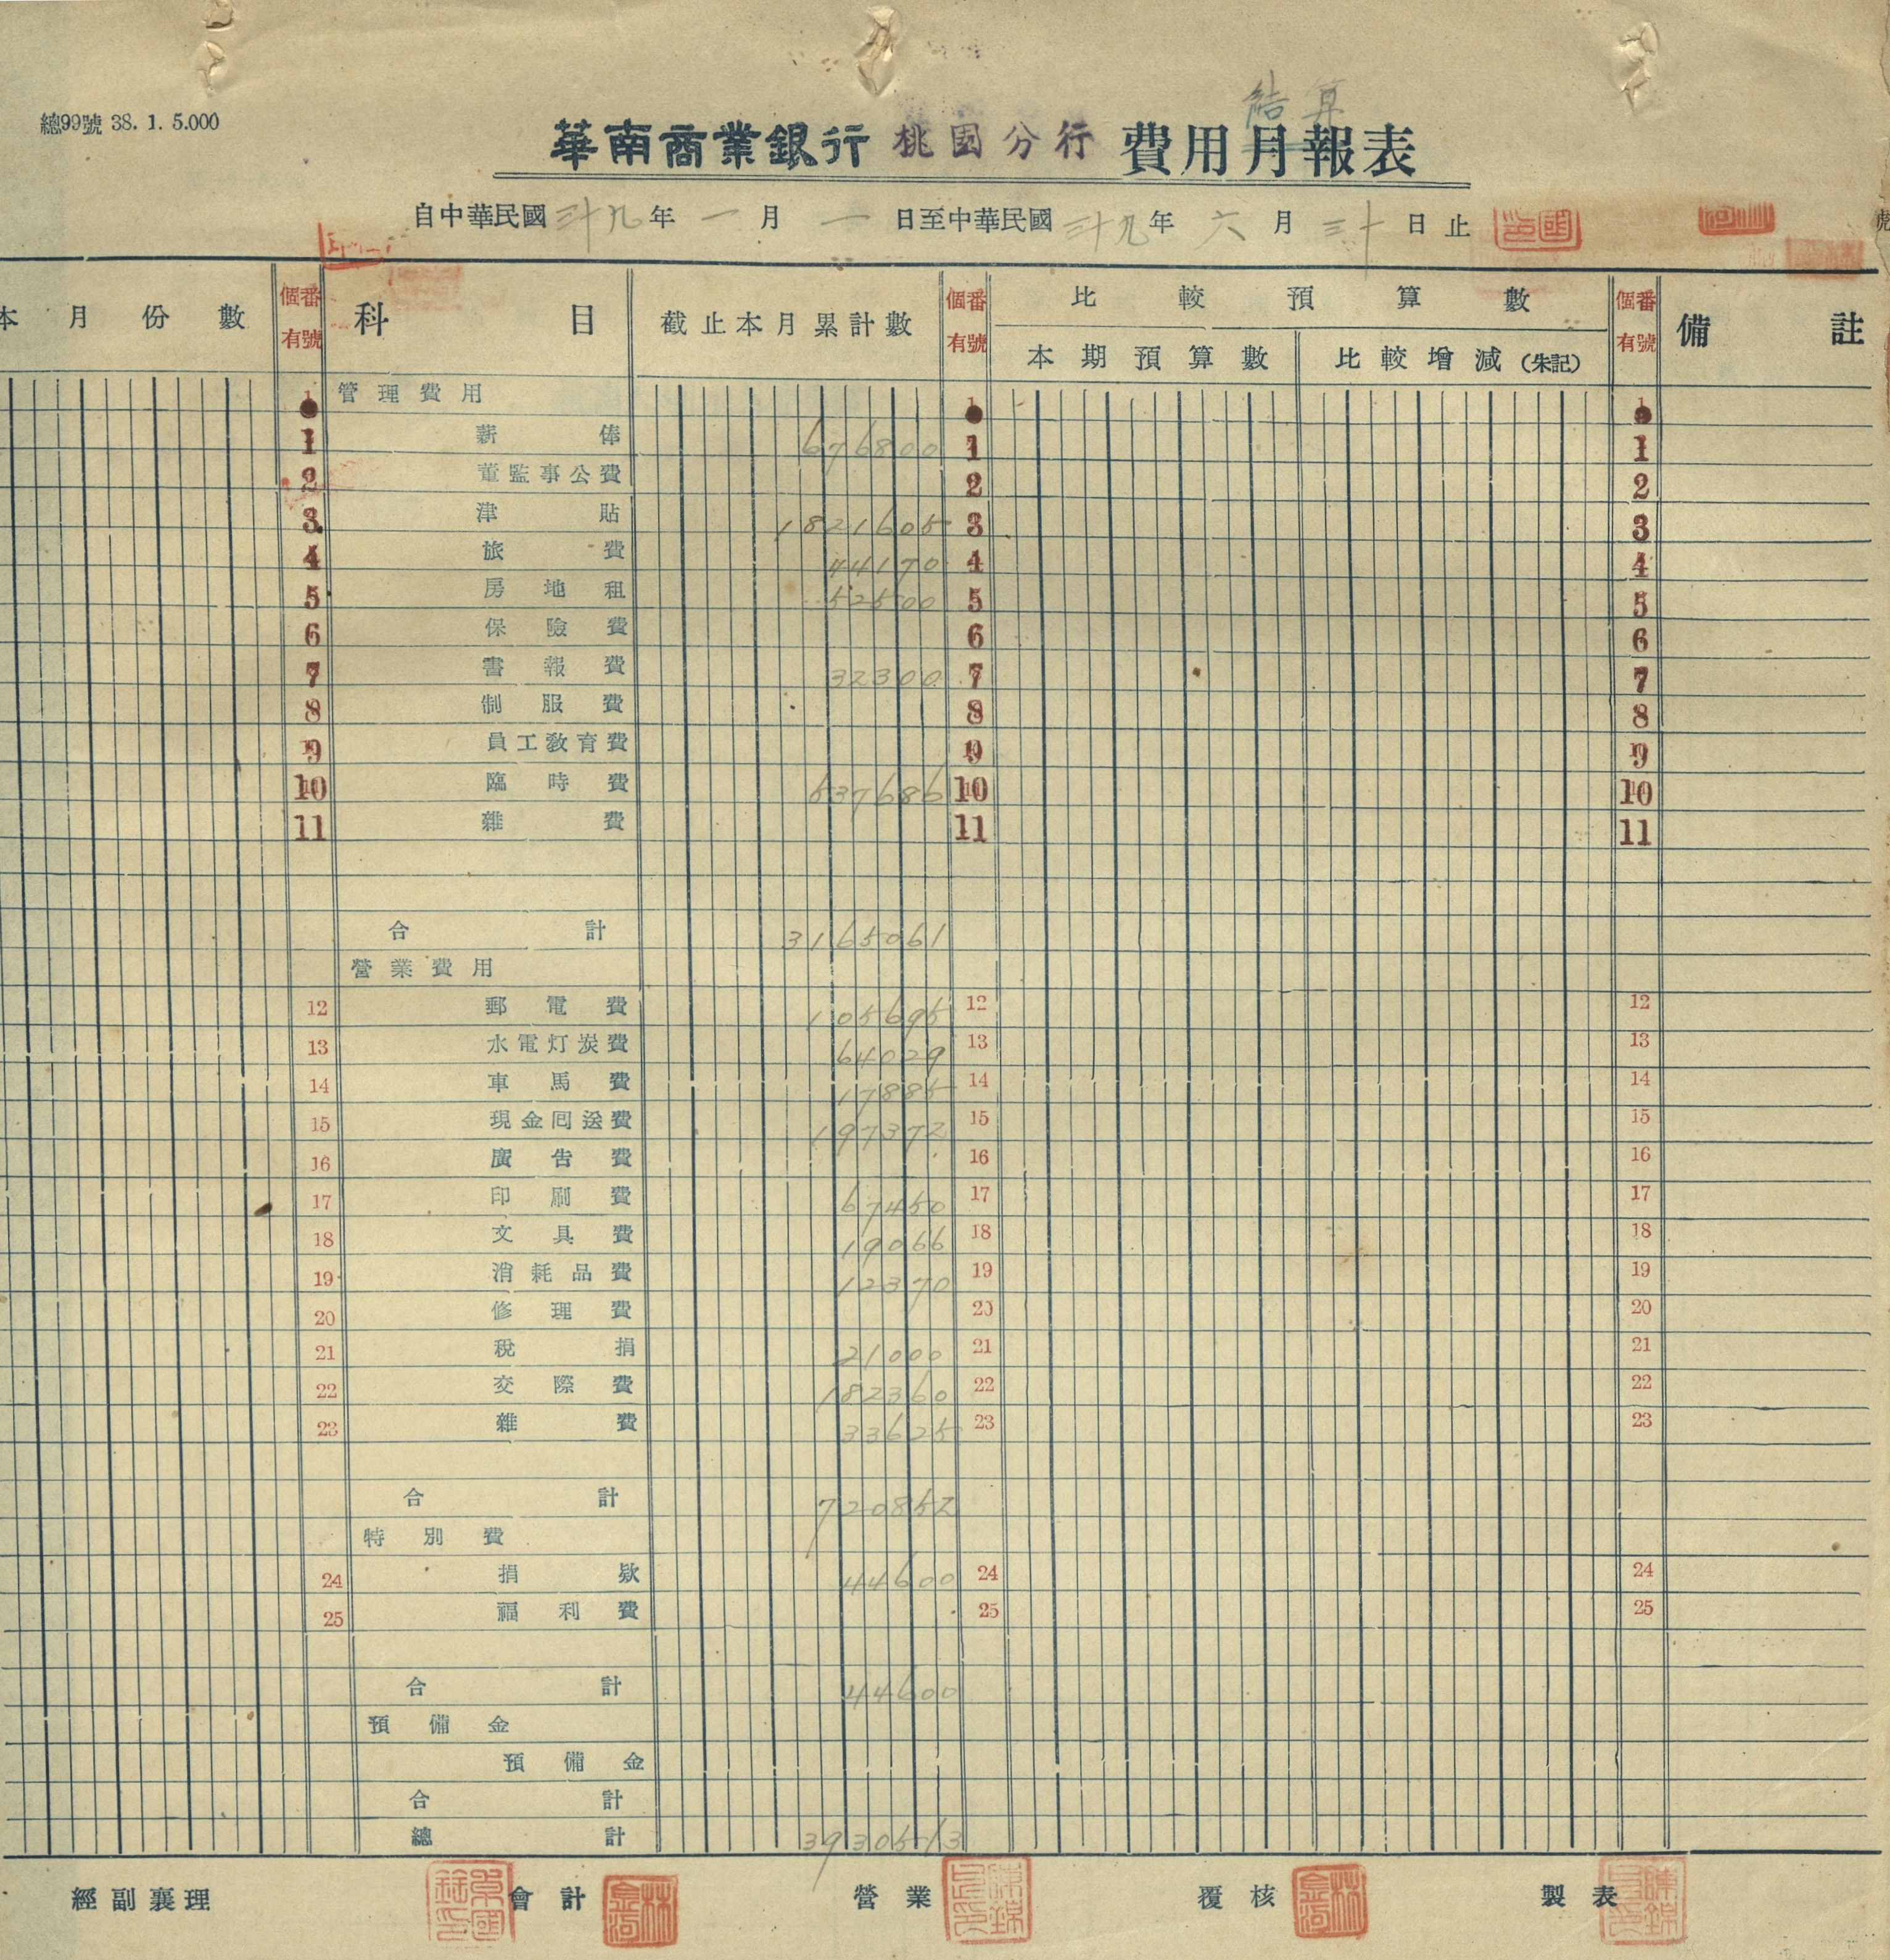 總99號 38. 1. 5.000
結算
華南商業銀行 桃園分行 費用月報表
自中華民國三十九年一月一日至中華民國三十九年六月三十日止
本月份數 個有番號 科目 截止本月累計數 個有番號 比較預算數 個有番號 備註
本期預算數 比較增減(朱記)
管理費用
1 薪俸 676800 1 1
2 董監事公費 2 2
3 津貼 1821605 3 3
4 旅費 44170 4 4
5 房地租 52500 5 5
6 保險費 6 6
7 書報費 32300 7 7
8 制服費 8 8
9 員工教育費 9 9
10 臨時費 537686 10 10
11 雜費 11 11
合計 3165061
營業費用
12 郵電費 105695 12 12
13 水電灯炭費 64029 13 13
14 車馬費 17885 14 14
15 現金囘送費 197372 15 15
16 廣告費 16 16
17 印刷費 67450 17 17
18 文具費 19066 18 18
19 消耗品費 12370 19 19
20 修理費 20 20
21 稅捐 21000 21 21
22 交際費 182360 22 22
23 雜費 33625 23 23
合計 720852
特別費
24 捐欵 44600 24 24
25 福利費 25 25
合計 44600
預備金
預備金
合計
總計 3930513
經副襄理 會計 營業 覆核 製表